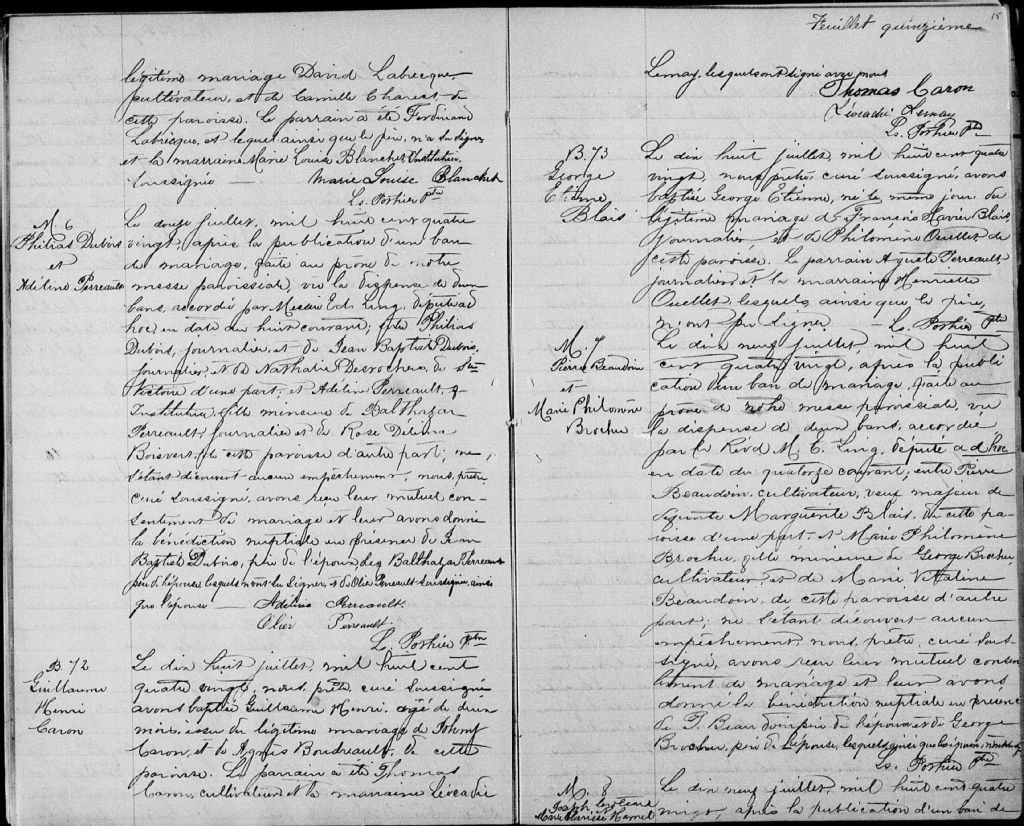 légitime mariage David Labrecque
cultivateur, et de Camille Charest de
cette paroisse. Le parrain a été Ferdinand
Labrecque, et lequel ainsi que le père, n'a su signer,
et la marraine Marie Louise Blanchet Institutrice
soussignée — Marie Louise Blanchet
Ls. Pothier Ptre
M. 6
Philias Dubois
et
Adeline Perreault
Le douze juillet, mil huit cent quatre
vingt, après la publication d'un ban
de mariage, faite au prône de notre
messe paroissiale, vu la dispense de deux
bans, accordée par Messire Ed. Ling, député ad
hoc, en date du huit courant; entre Philias
Dubois, journalier, et de Jean Baptiste Dubois,
journalier, et de Nathalie Desrochers, de Ste
Victoire d'une part; et Adeline Perreault,
Institutrice, fille mineure de Balthazar
Perreault, journalier et de Rose Délima
Boisvert, de cette paroisse d'autre part; ne
s'étant découvert aucun empêchement, nous, prêtre,
curé soussigné, avons reçu leur mutuel con-
sentement de mariage et leur avons donné
la bénédiction nuptiale en présence de Jean
Baptiste Dubois, père de l'époux, de Balthazar Perreault
père de l'épouse, lesquels n'ont su signer, et de Olier Perreault soussigné, ainsi
que l'épouse — Adélina Perreault.
Olier Perreault.
L. Pothier Ptre
B. 72
Guillaume
Henri
Caron
Le dix huit juillet, mil huit cent
quatre vingt, nous, prêtre, curé soussigné
avons baptisé Guillaume Henri, âgé de deux
mois, issu du légitime mariage de Johny
Caron, et de Agnès Boudreault, de cette
paroisse. Le parrain a été Thomas
Caron, cultivateur et la marraine Léocadie
15
Feuillet quinzième
Lemay, lesquels ont signé avec nous
Thomas Caron
Léocadie Lemay
Ls. Pothier Ptre
B. 73
George
Etienne
Blais
Le dix huit juillet, mil huit cent quatre
vingt, nous, prêtre, curé soussigné, avons
baptisé George Etienne, né le même jour, du
légitime mariage de François Xavier Blais,
journalier, et de Philomène Ouellet, de
cette paroisse. Le parrain Perreault
journalier et la marraine Henriette
Ouellet, lesquels, ainsi que le père,
n'ont pu signer — Ls. Pothier Ptre
M. 7
Pierre Beaudoin
et
Marie Philomène
Brochu
Le dix neuf juillet, mil huit
cent quatre vingt, après la publi
cation d'un ban de mariage, faite au
prône de notre messe paroissiale, vu
la dispense de deux bans, accordée
par le Révd M. E. Ling, député ad hoc
en date du quatorze courant, entre Pierre
Beaudoin, cultivateur, veuf majeur de
défunte Marguerite Blais, de cette pa-
roisse d'une part, et Marie Philomène
Brochu, fille mineure de George Brochu,
cultivateur, et de Marie Vitaline
Beaudoin, de cette paroisse d'autre
part; ne s'étant découvert aucun
empêchement, nous, prêtre, curé sous-
signé, avons reçu leur mutuel consen-
tement de mariage et leur avons
donné la bénédiction nuptiale en présence
de T. Beaudoin père de l'époux et de George
Brochu, père de l'épouse, lesquels ainsi que les époux, n'ont su
Ls. Pothier Ptre
M. 8
Joseph
et
Marie Clarisse Hamel
Le dix neuf juillet, mil huit cent quatre
vingt, après la publication d'un ban de